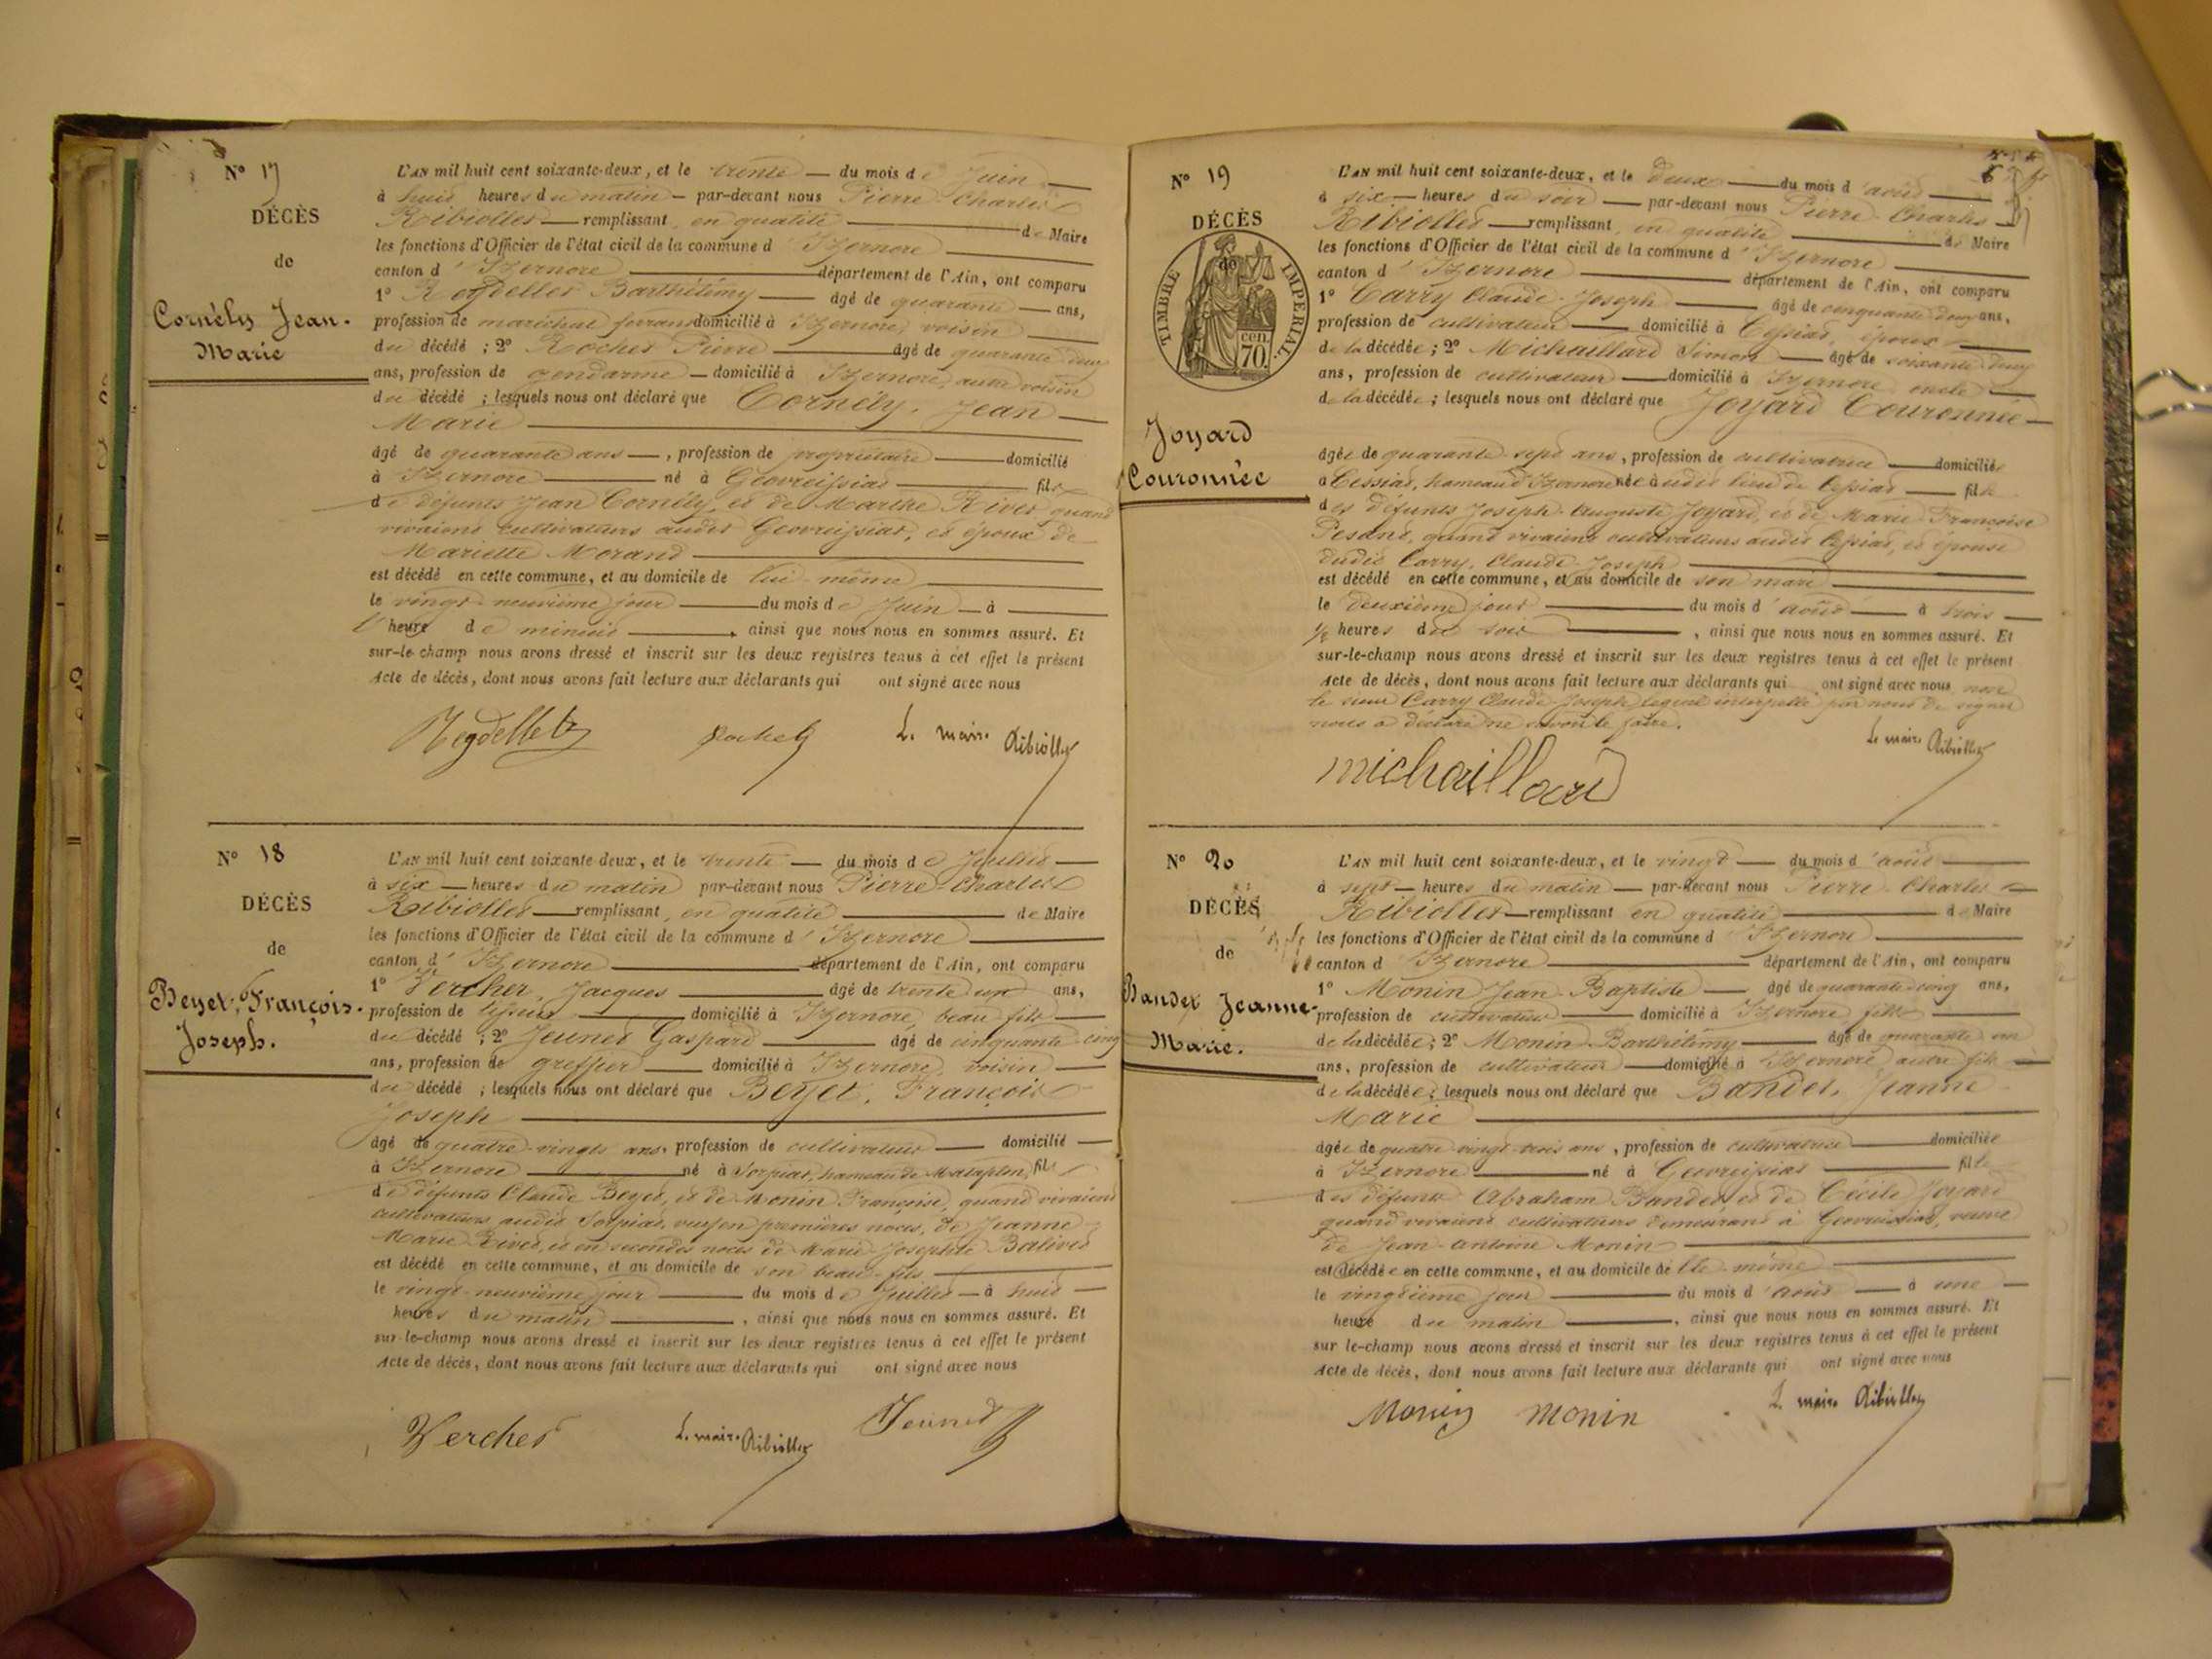 N° 17
DÉCÈS
de
Cornély Jean-
Marie
L'AN mil huit cent soixante-deux, et le trente du mois de Juin
à huit heures du matin par-devant nous Pierre Charles
Ribiollet remplissant en qualité de Maire
les fonctions d'Officier de l'état civil de la commune d'Izernore
canton d'Izernore département de l'Ain, ont comparu
1° Reydellet Barthélémy âgé de quarante ans,
profession de maréchal ferrant domicilié à Izernore, voisin
du décédé ; 2° Rochet Pierre âgé de quarante deux
ans, profession de gendarme domicilié à Izernore, autre voisin
du décédé ; lesquels nous ont déclaré que Cornély, Jean
Marie
âgé de quarante ans, profession de propriétaire domicilié
à Izernore né à Géovreissiat fils
de défunts Jean Cornély, et de Marthe Rivet quand
vivaient cultivateurs audit Géovreissiat, et époux de
Mariette Morand
est décédé en cette commune, et au domicile de lui-même
le vingt-neuvième jour du mois de Juin à
l'heure de minuit, ainsi que nous nous en sommes assuré. Et
sur-le-champ nous avons dressé et inscrit sur les deux registres tenus à cet effet le présent
Acte de décès, dont nous avons fait lecture aux déclarants qui ont signé avec nous
Reydellet Rochet Le maire Ribiollet
N° 18
DÉCÈS
de
Beyet, François-
Joseph.
L'AN mil huit cent soixante-deux, et le trente du mois de Juillet
à six heures du matin par-devant nous Pierre Charles
Ribiollet remplissant en qualité de Maire
les fonctions d'Officier de l'état civil de la commune d'Izernore
canton d'Izernore département de l'Ain, ont comparu
1° Vercher, Jacques âgé de trente un ans,
profession de domicilié à Izernore, beau fils
du décédé ; 2° Jeunet Gaspard âgé de cinquante cinq
ans, profession de greffier domicilié à Izernore, voisin
du décédé ; lesquels nous ont déclaré que Beyet, François
Joseph
âgé de quatre-vingts ans, profession de cultivateur domicilié
à Izernore né à Sorpiat, hameau de Matafelon, fils
de défunts Claude Beyet, et de Monin Françoise, quand vivaient
cultivateurs audit Sorpiat, en premières noces, de Jeanne
Marie Rivet, et en secondes noces de Marie Josephte Balivet
est décédé en cette commune, et au domicile de son beau-fils
le vingt-neuvième jour du mois de Juillet à huit
heures du matin, ainsi que nous nous en sommes assuré. Et
sur-le-champ nous avons dressé et inscrit sur les deux registres tenus à cet effet le présent
Acte de décès, dont nous avons fait lecture aux déclarants qui ont signé avec nous
Vercher Le maire Ribiollet Jeunet
N° 19
DÉCÈS
de
TIMBRE IMPÉRIAL
70 cen.
Joyard
Couronnée
L'AN mil huit cent soixante-deux, et le deux du mois d'août
à six heures du soir par-devant nous Pierre Charles
Ribiollet remplissant en qualité de Maire
les fonctions d'Officier de l'état civil de la commune d'Izernore
canton d'Izernore département de l'Ain, ont comparu
1° Carry Claude-Joseph âgé de cinquante deux ans,
profession de cultivateur domicilié à Cessiat, époux
de la décédée ; 2° Michaillard Simon âgé de soixante deux
ans, profession de cultivateur domicilié à Izernore oncle
de la décédée ; lesquels nous ont déclaré que Joyard Couronnée
âgée de quarante-sept ans, profession de cultivatrice domiciliée
à Cessiat, hameau d'Izernore née audit lieu de Cessiat fille
des défunts Joseph-Auguste Joyard, et de Marie Françoise
Pesant, quand vivaient cultivateurs audit Cessiat, et épouse
dudit Carry, Claude-Joseph
est décédé en cette commune, et au domicile de son mari
le deuxième jour du mois d'août à trois
1/2 heures du soir, ainsi que nous nous en sommes assuré. Et
sur-le-champ nous avons dressé et inscrit sur les deux registres tenus à cet effet le présent
Acte de décès, dont nous avons fait lecture aux déclarants qui ont signé avec nous non
le sieur Carry Claude-Joseph lequel interpellé par nous de signer
nous a déclaré ne savoir le faire.
michaillard Le maire Ribiollet
N° 20
DÉCÈS
de
Bandet Jeanne-
Marie.
L'AN mil huit cent soixante-deux, et le vingt du mois d'août
à sept heures du matin par-devant nous Pierre Charles
Ribiollet remplissant en qualité de Maire
les fonctions d'Officier de l'état civil de la commune d'Izernore
canton d'Izernore département de l'Ain, ont comparu
1° Monin Jean-Baptiste âgé de quarante-cinq ans,
profession de cultivateur domicilié à Izernore fils
de la décédée ; 2° Monin Barthélémy âgé de quarante un
ans, profession de cultivateur domicilié à Izernore autre fils
de la décédée ; lesquels nous ont déclaré que Bandet, Jeanne
Marie
âgée de quatre-vingt-trois ans, profession de cultivatrice domiciliée
à Izernore né à Géovreissiat fille
des défunts Abraham Bandet, et de Cécile Joyard
quand vivaient cultivateurs demeurant à Géovreissiat, veuve
de Jean-Antoine Monin
est décédée en cette commune, et au domicile de elle-même
le vingtième jour du mois d'août à une
heure du matin, ainsi que nous nous en sommes assuré. Et
sur le-champ nous avons dressé et inscrit sur les deux registres tenus à cet effet le présent
Acte de décès, dont nous avons fait lecture aux déclarants qui ont signé avec nous
Monin monin Le maire Ribiollet